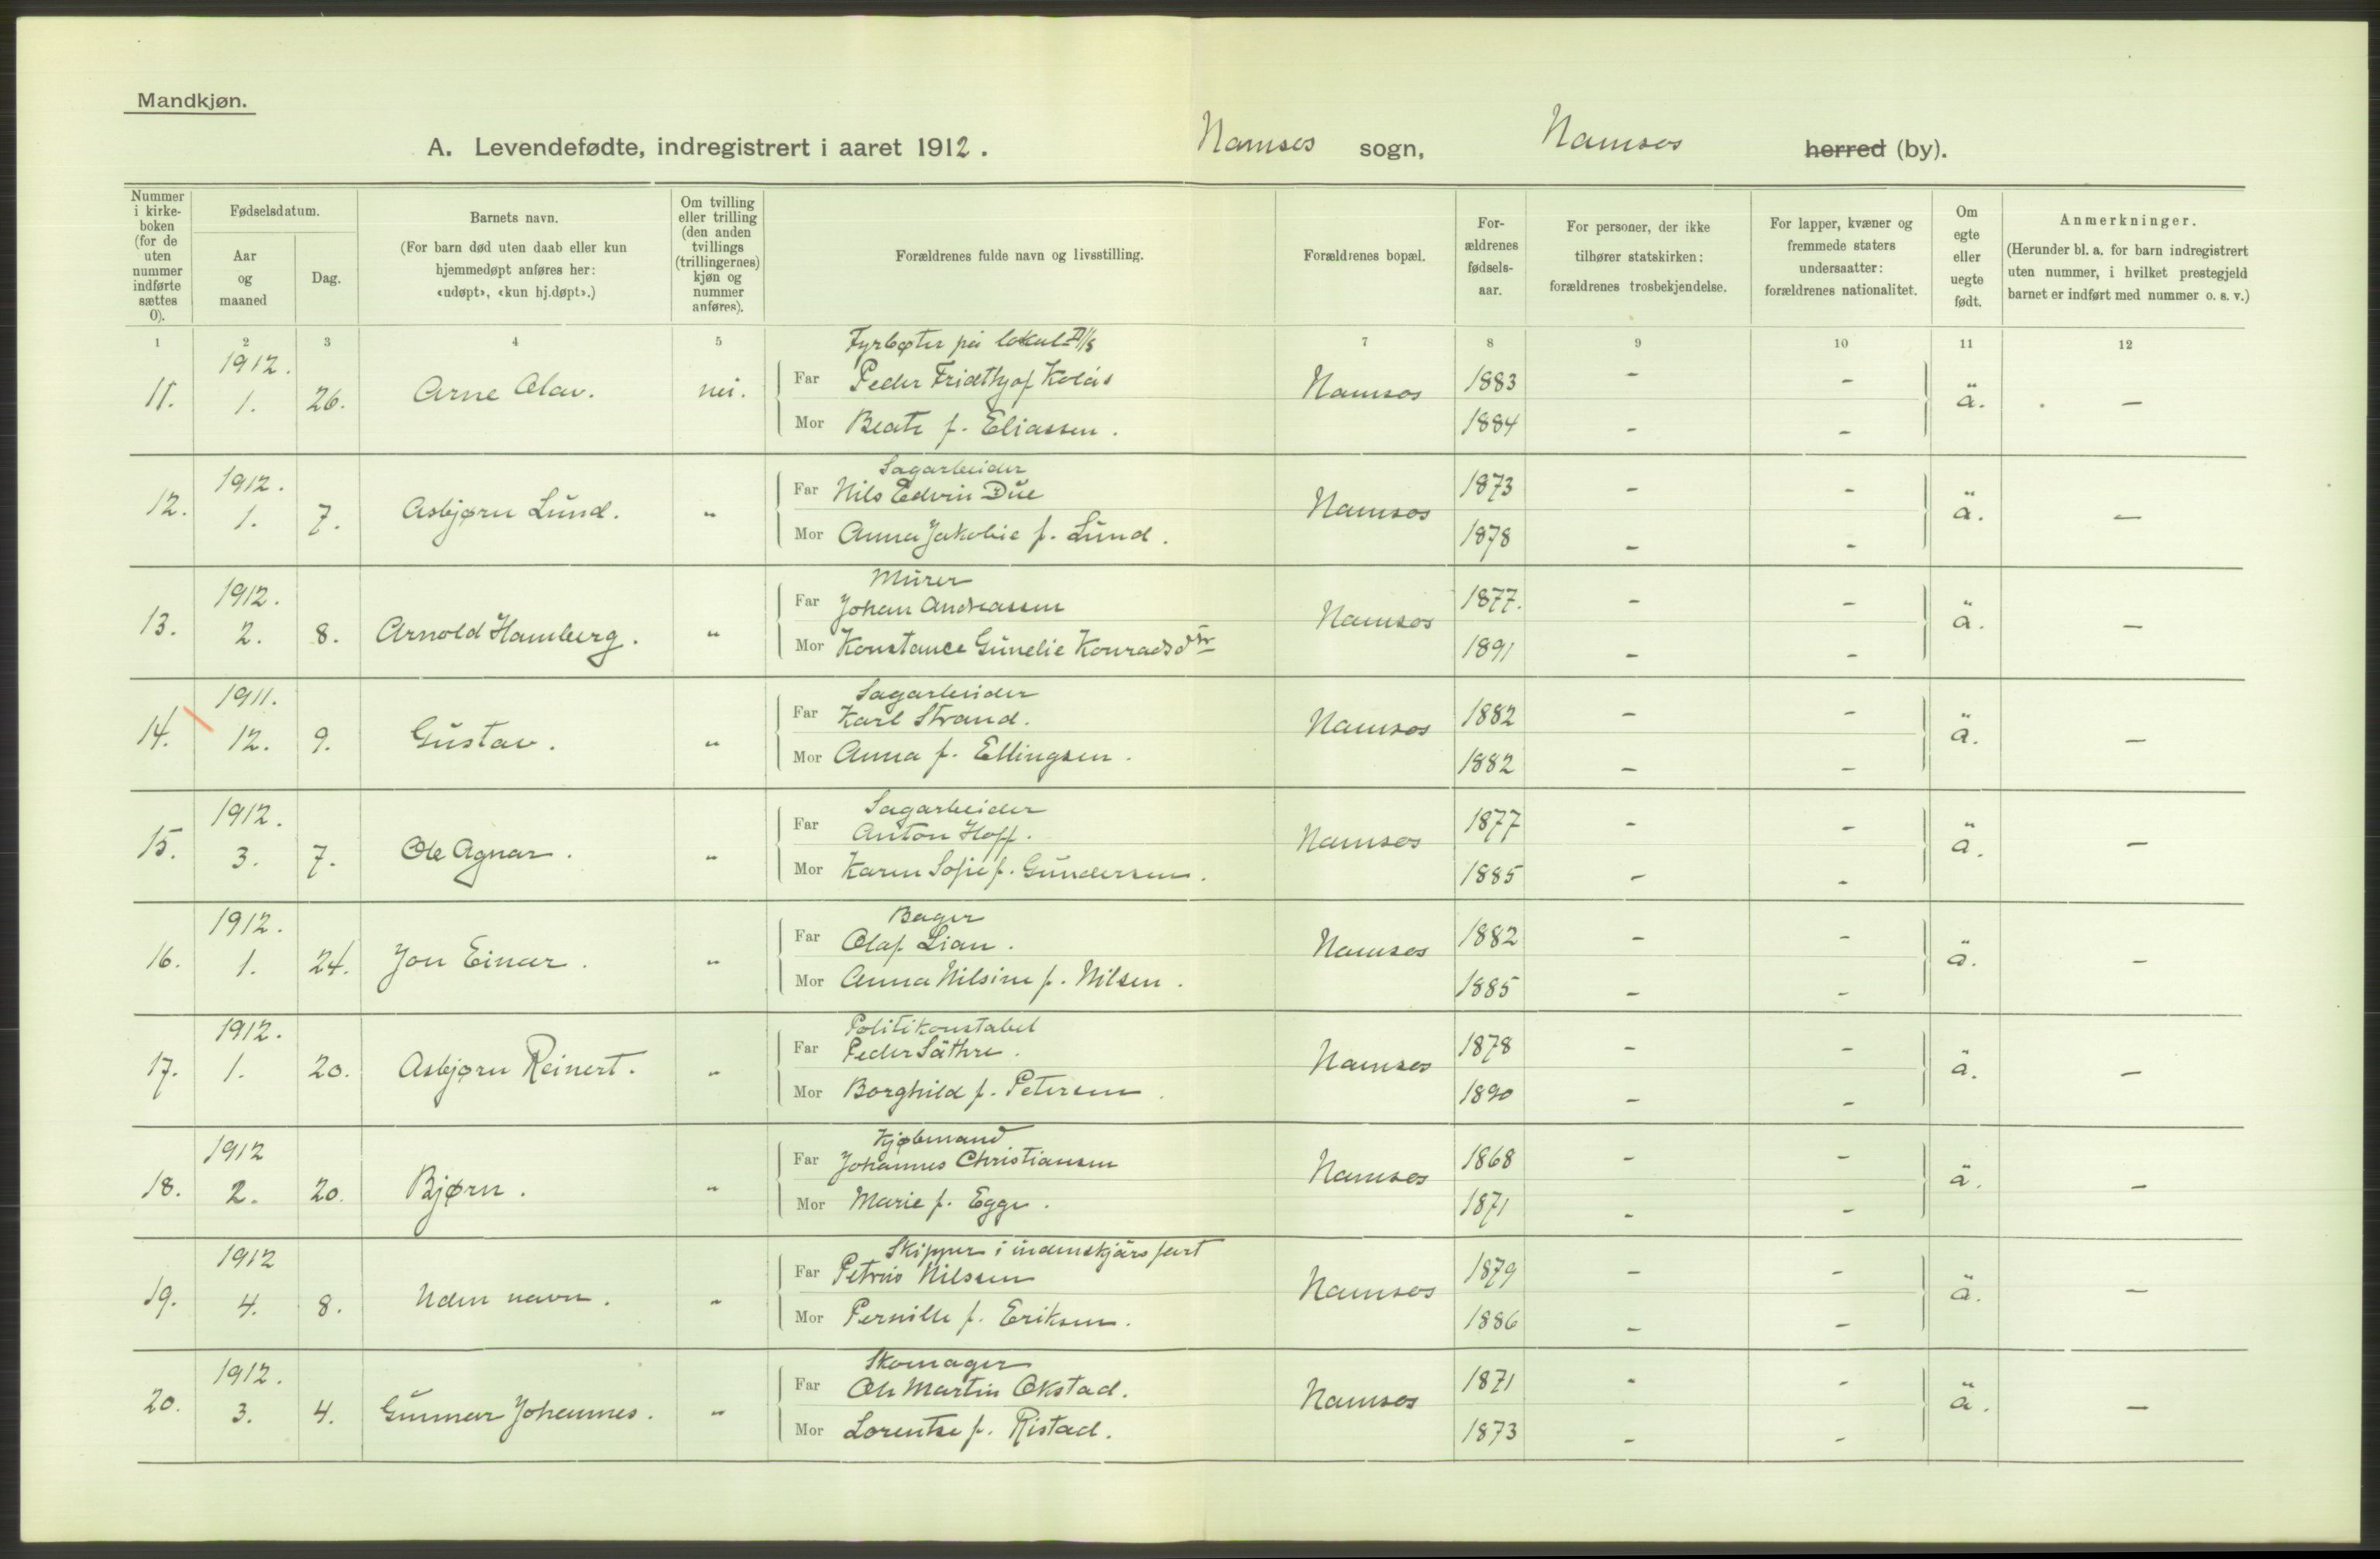 Mandkjøn.
A. Levendefødte, indregistrert i aaret 1912. Namsos sogn, Namsos herred (by).
Nummer i kirkeboken (for de uten nummer indførte sættes 0).
Fødselsdatum.
Aar og maaned
Dag.
Barnets navn.
(For barn død uten daab eller kun hjemmedøpt anføres her: «udøpt», «kun hj.døpt».)
Om tvilling eller trilling (den anden tvillings (trillingernes) kjøn og nummer anføres).
Forældrenes fulde navn og livsstilling.
Forældrenes bopæl.
Forældrenes fødselsaar.
For personer, der ikke tilhører statskirken: forældrenes trosbekjendelse.
For lapper, kvæner og fremmede staters undersaatter: forældrenes nationalitet.
Om egte eller uegte født.
Anmerkninger.
(Herunder bl. a. for barn indregistrert uten nummer, i hvilket prestegjeld barnet er indført med nummer o. s. v.)
1 2 3 4 5 7 8 9 10 11 12
Fyrbøter på lokal D/S
11. 1912. 1. 26. Arne Olav. nei. Far Peder Fridthjof Kolås Namsos 1883 - - ä. —
Mor Beate f. Eliassen. 1884 - -
Sagarbeider
12. 1912. 1. 7. Asbjørn Lund. " Far Nils Edvin Due Namsos 1873 - - ä. —
Mor Anna Jakobie f. Lund. 1878 - -
Murer
13. 1912. 2. 8. Arnold Hamberg. " Far Johan Andreassen Namsos 1877. - - ä. —
Mor Konstance Gunelie Konradsdtr 1891 - -
Sagarbeider
14. 1911. 12. 9. Gustav. " Far Karl Strand. Namsos 1882 - - ä. —
Mor Anna f. Ellingsen. 1882 - -
Sagarbeider
15. 1912. 3. 7. Ole Agnar. " Far Anton Hoff. Namsos 1877 - - ä. —
Mor Karen Sofie f. Gundersen. 1885 - -
Bager
16. 1912. 1. 24. Jon Einar. " Far Olaf Lian. Namsos 1882 - - ä. —
Mor Anna Nilsine f. Nilsen. 1885 - -
Politikonstabel
17. 1912. 1. 20. Asbjørn Reinert. " Far Peder Säthre. Namsos 1878 - - ä. —
Mor Borghild f. Petersen. 1890 - -
Kjøbmand
18. 1912 2. 20. Bjørn. " Far Johannes Christiansen Namsos 1868 - - ä. —
Mor Marie f. Egge. 1871 - -
Skipper i indenskjärs fart
19. 1912 4. 8. Uden navn. " Far Petrus Nilssen Namsos 1879 - - ä. —
Mor Pernille f. Eriksen. 1886 - -
Skomager
20. 1912. 3. 4. Gunnar Johannes. " Far Ole Martin Okstad. Namsos 1871 - - ä. —
Mor Lorentse f. Ristad. 1873 - -